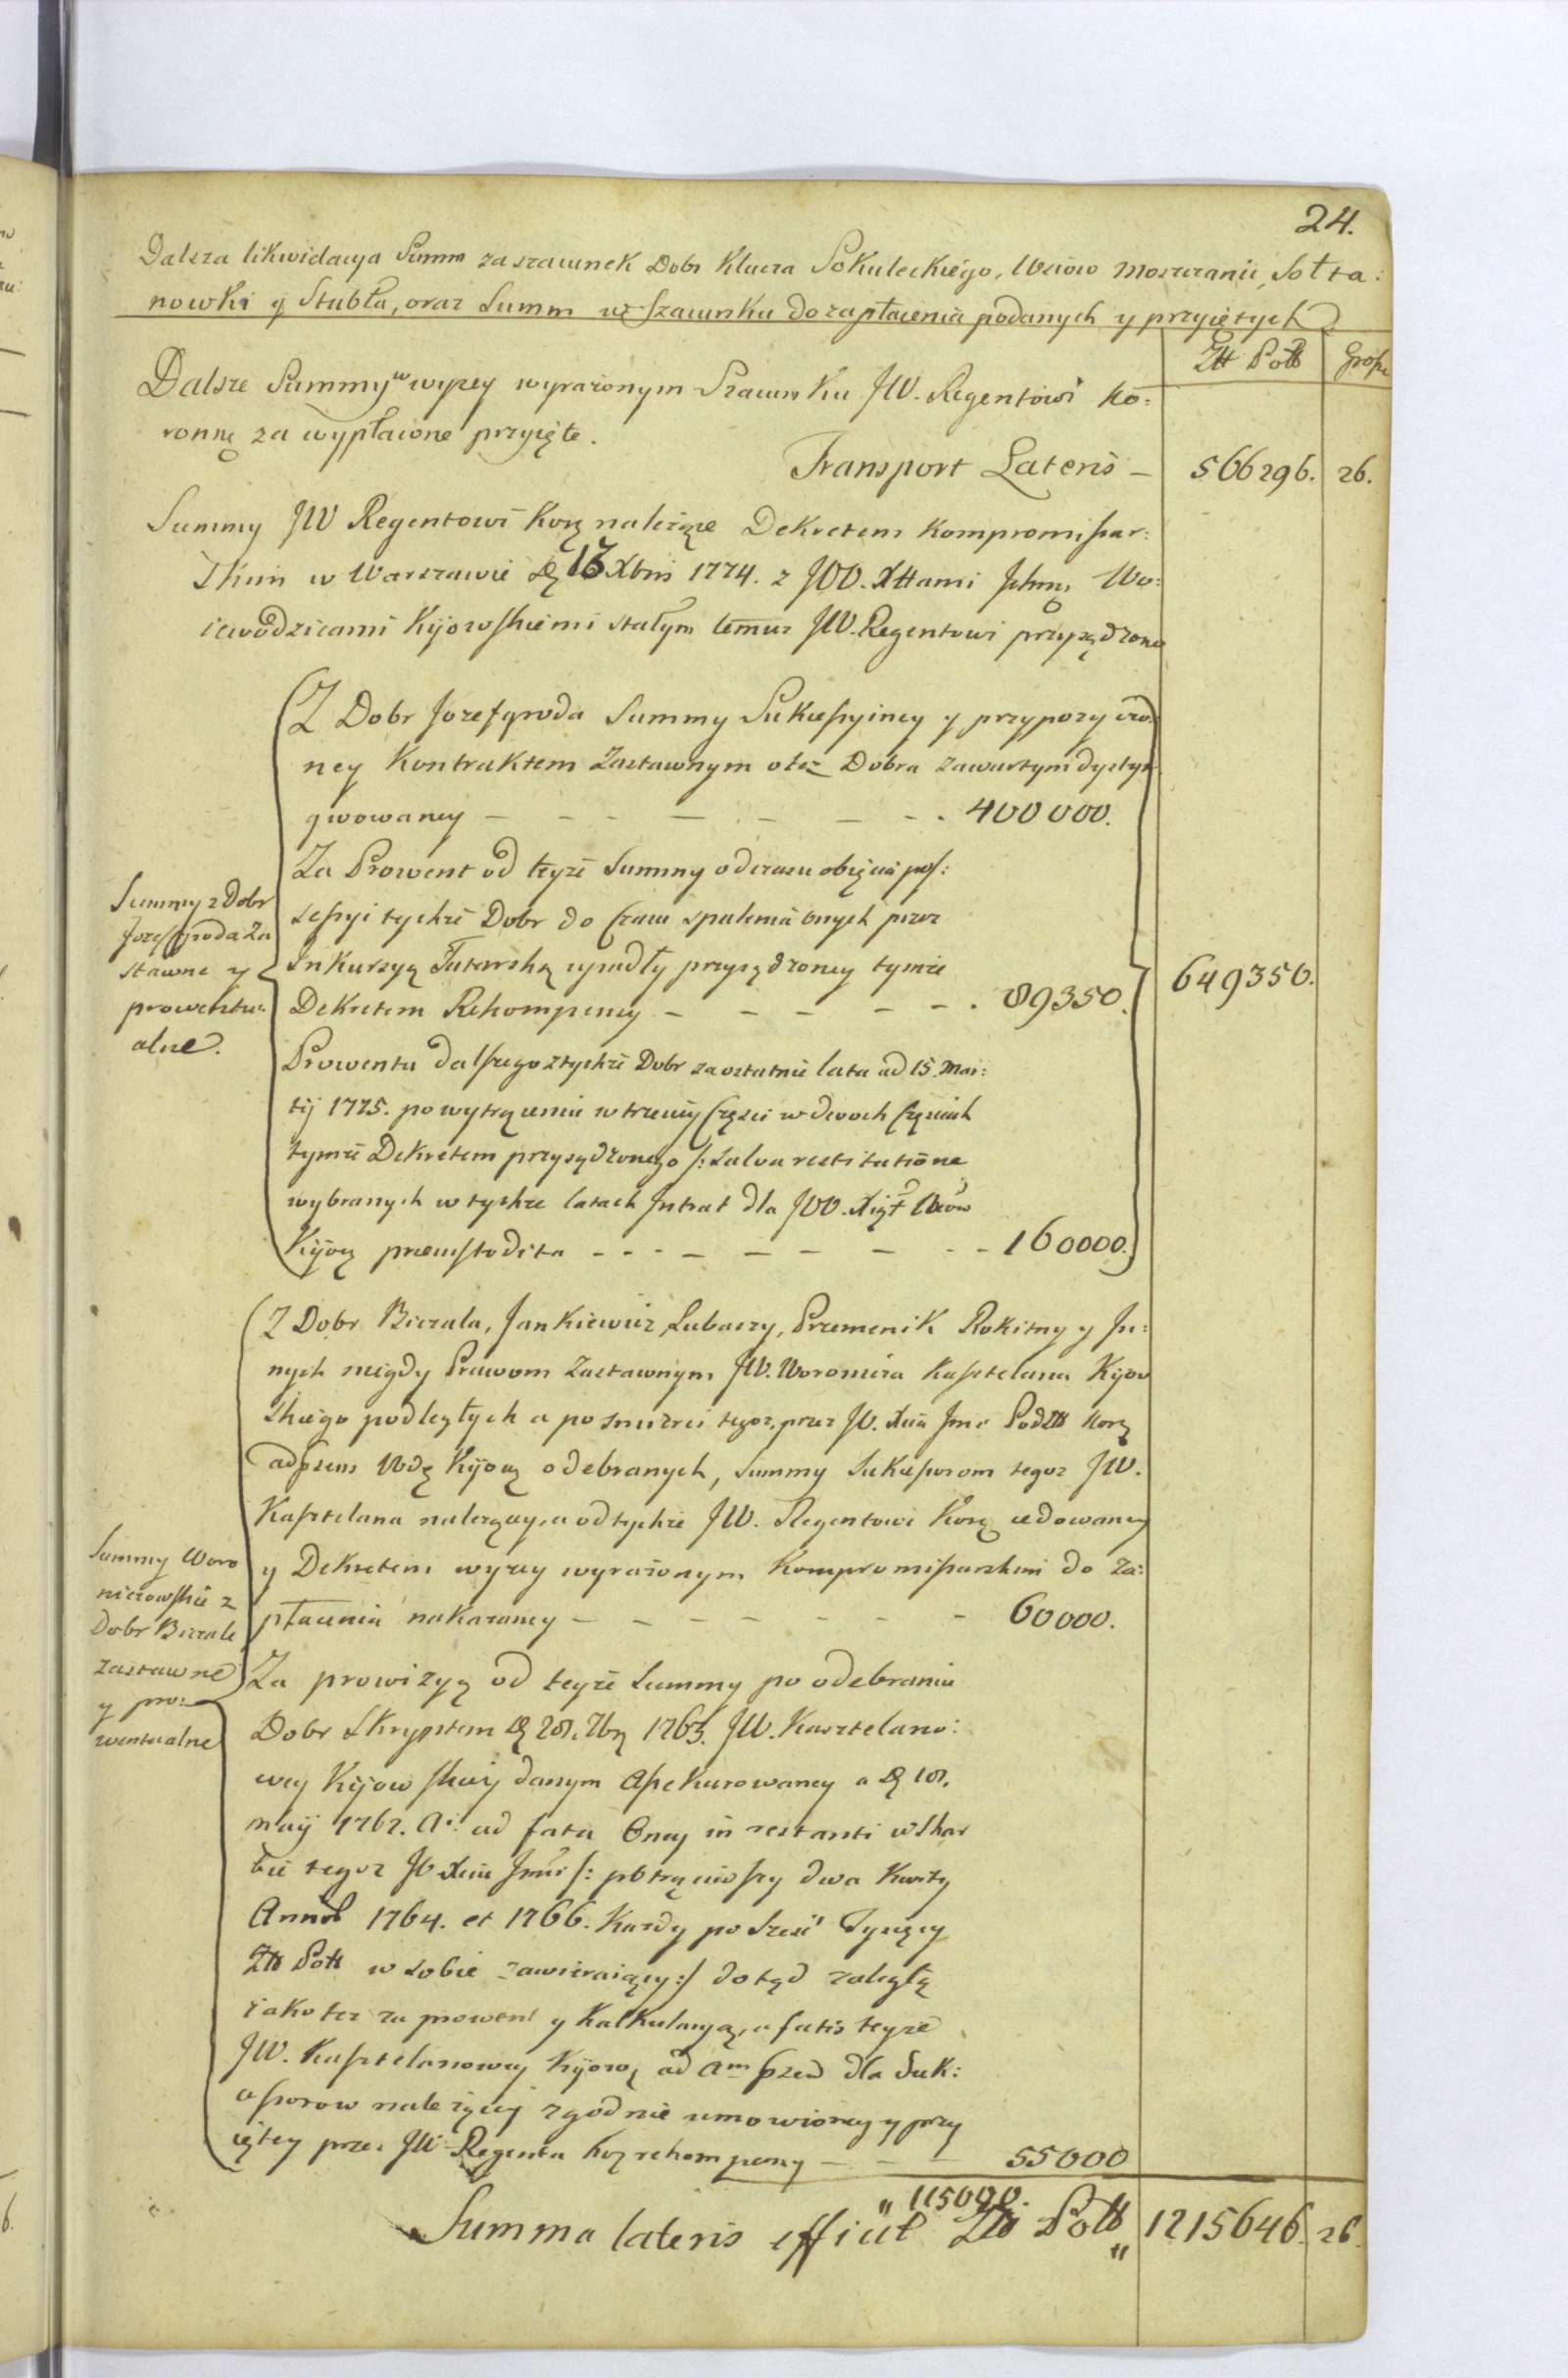 24.
Dalsza likwidacya Summ za szacunek Dobr Klucza Sokuleckiego, Wsiow Moszczanic, Sołta:
nowki y Stubła, oraz Summ w Szacunku do zapłacenia podanych y przyiętych
Złł Polł Grosze
Dalsze Summy w wyzey wyrażonym Szacunku JW. Regentowi Ko:
ronnę za wypłacone przyięte.
Transport Lateris — 566296. 26.
Summy JW Regentowi Korę należące Dekretem Kompromissar:
skim w Warszawie 13 Xbris 1774. z JWW. Woi:
iewodzicami Kijowskiemi stałym temuz JW. Regentowi przysądzone
Summy z Dobr
Jozefgroda Za
stawne y
prowentu:
alne.
Z Dobr Jozefgroda Summy Sukcessyiney y przypozyczo:
ney Kontraktem Zastawnym o też Dobra zawartym dystyn
gwowaney — — — — — — — 400000.
Za Prowent od teyże Summy od czasu obięcia pos:
sessyi tychże Dobr do Czasu spalenia onych przez
Inkursyą Tatarską upadły przysądzoney tymże
Dekretem Rekompensy — — — — — 89350.
649350.
Prowentu dalszego z tychże Dobr za ostatnie lata ad 15. Mar:
tij 1775. po wytrąceniu trzeciey Części w dwoch Częsciach
tymże Dekretem przysądzonego /: salva restitutione
wybranych w tychze latach Intrat dla JWW. Xiąż Wdow
Kijowę — — — — — — — 160000.
Z Dobr Biczala, Jankiewicz, Lubaczy, Przemenik Rokitny y In:
nych niegdy Prawom Zastawnym JW. Woronicza Kasztelana Kijow
skiego podległych a po smierci tegoz, przez JO. Xcia Jmci Korę
ad praesens Wdę Kijowę odebranych, Summy Sukcessorom tegoz JW.
Kasztelana należącey, a od tychże JW. Regentowi Korę cedowaney
y Dekretem wyzey wyrażonym Kompromissarskim do Za:
płacenia nakazaney — — — — — — — 60000.
Summy Woro
niczowskie z
Dobr Biczale
zastawne
y pro:
wentualne
Za prowizyą od teyże Summy po odebraniu
Dobr Skryptem 1763. JW. Kasztelano:
wey Kijowskiey danym Assekurowaney a
maij 1767. ad fata Oney in restanti w Skar
bie tegoz JO Xcia Jmci /: potrąciwszy dwa Kwity
Annor 1764. et 1766. Każdy po Sześć Tysięcy
Złł Polł w sobie zawieraiący :/ dotąd zaległą
iako tez za prowent y Kalkulacyą, a fatis teyze
JW. Kasztelanowey Kijowę ad dla Suk:
cessorow nalezącey zgodnie umowioney y przy
iętey przez JW Regenta Korę rekompensy — — — 55000
" 115000.
Summa lateris efficit Złł Polł " 1215646. 26.